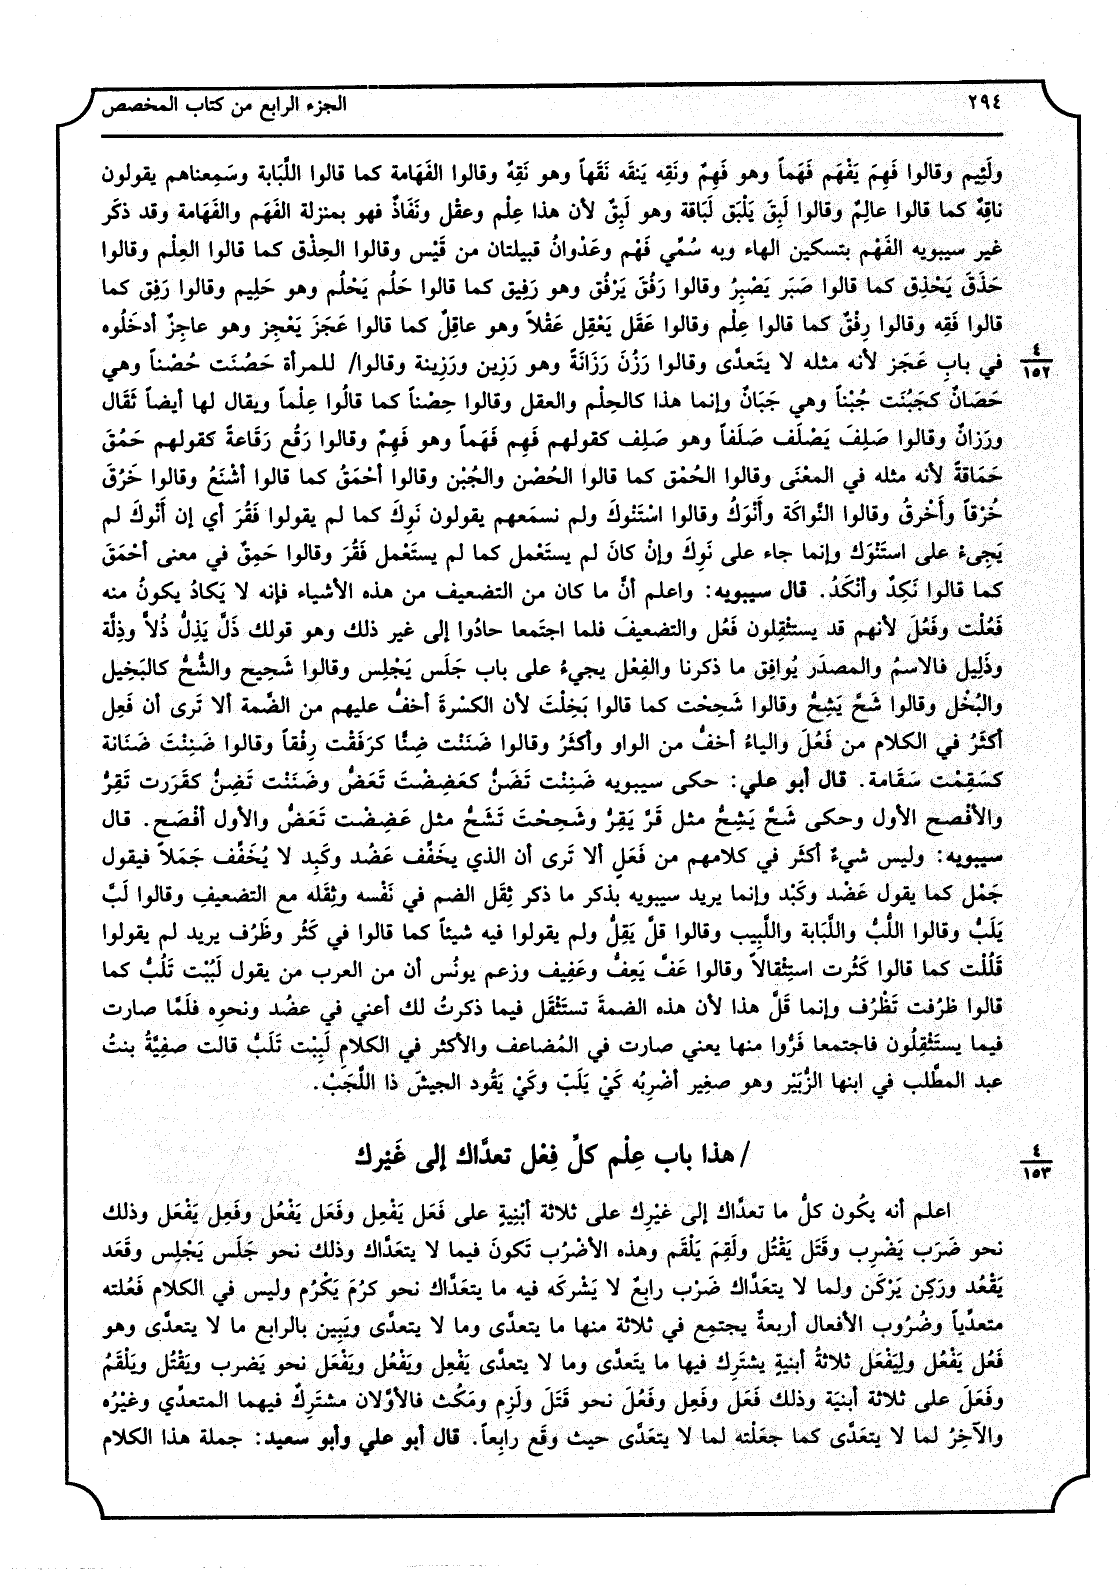 ٢٩٤
الجزء الرابع من كتاب المخصص
ولَئِيم وقالوا فَهِمَ يَفْهَم فَهَماً وهو فَهِمٌ ونَقِه يَنقَه نَقَهاً وهو نَقِهٌ وقالوا الفَهَامة كما قالوا اللَّبابة وسَمِعناهم يقولون
ناقِهٌ كما قالوا عالِمٌ وقالوا لَبِقَ يَلْبَق لَبَاقة وهو لَبِقٌ لأن هذا عِلْم وعقْل ونَفَاذٌ فهو بمنزلة الفَهَم والفَهَامة وقد ذكَر
غير سيبويه الفَهْم بتسكين الهاء وبه سُمِّي فَهْم وعَدْوانُ قبيلتان من قَيْس وقالوا الحِذْق كما قالوا العِلْم وقالوا
حَذَقَ يَحْذِق كما قالوا صَبَر يَصْبِرُ وقالوا رَفُقَ يَرْفُق وهو رَفِيق كما قالوا حَلُم يَحْلُم وهو حَلِيم وقالوا رَفِق كما
قالوا فَقِه وقالوا رِفْقٌ كما قالوا عِلْم وقالوا عَقَل يَعْقِل عَقْلاً وهو عاقِلٌ كما قالوا عَجَزَ يَعْجِز وهو عاجِزٌ أدخَلُوه
في بابِ عَجَز لأنه مثله لا يتَعدَّى وقالوا رَزُنَ رَزَانَةً وهو رَزِين ورَزِينة وقالوا/ للمرأة حَصُنَت حُصْناً وهي
٤
١٥٢
حَصَانٌ كجَبُنَت جُبْناً وهي جَبَانٌ وإنما هذا كالحِلْم والعقل وقالوا حِصْناً كما قالُوا عِلْماً ويقال لها أيضاً ثَقَال
ورَزانٌ وقالوا صَلِفَ يَصْلَف صَلَفاً وهو صَلِف كقولهم فَهِم فَهَماً وهو فَهِمٌ وقالوا رَقُع رَقَاعةً كقولهم حَمُقَ
حَمَاقةً لأنه مثله في المعْنَى وقالوا الحُمْق كما قالوا الحُصْن والجُبْن وقالوا أحْمَقُ كما قالوا أشْنَعُ وقالوا خَرُقَ
خُرْقاً وأَخْرقُ وقالوا النَّواكَة وأَنْوَكُ وقالوا اسْتَنْوكَ ولم نسمَعهم يقولون نَوِكَ كما لم يقولوا فَقُرَ أي إن أَنْوكَ لم
يَجِىءْ على استَنْوَك وإنما جاء على نَوِكَ وإنْ كانَ لم يستَعْمل كما لم يستَعْمل فَقُرَ وقالوا حَمِقٌ في معنى أحْمَقَ
كما قالوا نَكِدٌ وأنْكَدُ. قال سيبويه: واعلم أنَّ ما كان من التضعيف من هذه الأشياء فإنه لا يَكادُ يكونُ منه
فَعُلْت وفَعُلَ لأنهم قد يستثْقِلون فَعُل والتضعيفَ فلما اجتَمعا حادُوا إلى غير ذلك وهو قولك ذَلَّ يَذِلُّ ذُلاًّ وذِلَّة
وذَلِيل فالاسمُ والمصدَر يُوافِق ما ذكرنا والفِعْل يجيءُ على باب جَلَس يَجْلِس وقالوا شَحِيح والشُّحُّ كالبَخِيل
والبُخْل وقالوا شَحَّ يَشِحُّ وقالوا شَحِحْت كما قالوا بَخِلْتَ لأن الكسْرةَ أخفُّ عليهم من الضَّمة ألا تَرى أن فَعِل
أكثَرُ في الكلام من فَعُلَ والياءُ أخفُّ من الواو وأكثَرُ وقالوا ضَنَنْت ضِنًّا كرَفَقْت رِفْقاً وقالوا ضَنِنْتَ ضَنَانة
كسَقِمْت سَقَامة. قال أبو علي: حكى سيبويه ضَنِنْت تَضَنُّ كعَضِضْتَ تَعَضُّ وضَنَنْت تَضِنُّ كقَرَرت تَقِرُّ
والأفْصح الأول وحكى شَحَّ يَشِحُّ مثل قَرَّ يَقِرُّ وشَحِحْتَ تَشَحُّ مثل عَضِضْت تَعَضُّ والأول أفْصَح. قال
سيبويه: وليس شيءٌ أكثَر في كلامهم من فَعَلٍ ألا تَرى أن الذي يخَفِّف عَضُد وكَبِد لا يُخَفِّف جَمَلاً فيقول
جَمْل كما يقول عَضْد وكَبْد وإنما يريد سيبويه بذكر ما ذكر ثِقَل الضم في نَفْسه وثِقَله مع التضعيفِ وقالوا لَبَّ
يَلَبُّ وقالوا اللُّبُّ واللَّبَابة واللَّبِيب وقالوا قلَّ يَقِلُّ ولم يقولوا فيه شيئاً كما قالوا في كَثُر وظَرُف يريد لم يقولوا
قَلُلْت كما قالوا كَثُرت استِثْقالاً وقالوا عَفَّ يَعِفُّ وعَفِيف وزعم يونُس أن من العرب من يقول لَبُبْت تَلُبُّ كما
قالوا ظَرُفت تَظْرُف وإنما قَلَّ هذا لأن هذه الضمةَ تستَثْقَل فيما ذكرتُ لك أعني في عضُد ونحوِه فلَمَّا صارت
فيما يستَثْقِلُون فاجتمعا فَرُّوا منها يعني صارت في المُضاعف والأكثر في الكلامِ لَبِبْت تَلَبُّ قالت صفيَّةُ بنتُ
عبد المطَّلب في ابنها الزُّبَيْر وهو صغِير أضْرِبُه كَيْ يَلَبّ وكَيْ يَقُود الجيشَ ذا اللَّجَبْ.
/ هذا باب عِلْم كلِّ فِعْل تعدَّاك إلى غَيْرك
٤
١٥٣
اعلم أنه يكُون كلُّ ما تعدَّاك إلى غيْرِك على ثلاثة أبْنِيةٍ على فَعَل يَفْعِل وفَعَل يَفْعُل وفَعِل يَفْعَل وذلك
نحو ضَرَب يَضْرِب وقَتَل يَقْتُل ولَقِمَ يَلْقَم وهذه الأضْرُب تَكونَ فيما لا يتعَدَّاك وذلك نحو جَلَس يَجْلِس وقَعَد
يَقْعُد ورَكِن يَرْكَن ولما لا يتعدَّاك ضَرْب رابعٌ لا يَشْرَكه فيه ما يتعَدَّاك نحو كرُمَ يَكْرُم وليس في الكلام فَعُلته
متعدِّياً وضُرُوب الأفعال أربعةٌ يجتمِع في ثلاثة منها ما يتعدَّى وما لا يتعدَّى ويَبِين بالرابع ما لا يتعدَّى وهو
فَعُل يَفْعُل ولِيَفْعَل ثلاثةُ أبنيةٍ يشتَرِك فيها ما يتَعدَّى وما لا يتعدَّى يَفْعِل ويَفْعُل ويَفْعَل نحو يَضرب ويَقْتُل ويَلْقَمُ
وفَعَلَ على ثلاثة أبنيَة وذلك فَعَل وفَعِل وفَعُلَ نحو قَتَلَ ولَزِم ومَكُث فالأوَّلان مشترِكٌ فيهما المتعدِّي وغيْرُه
والآخِرُ لما لا يتعَدَّى كما جعَلْته لما لا يتعَدَّى حيث وقَع رابِعاً. قال أبو علي وأبو سعيد: جملة هذا الكلام